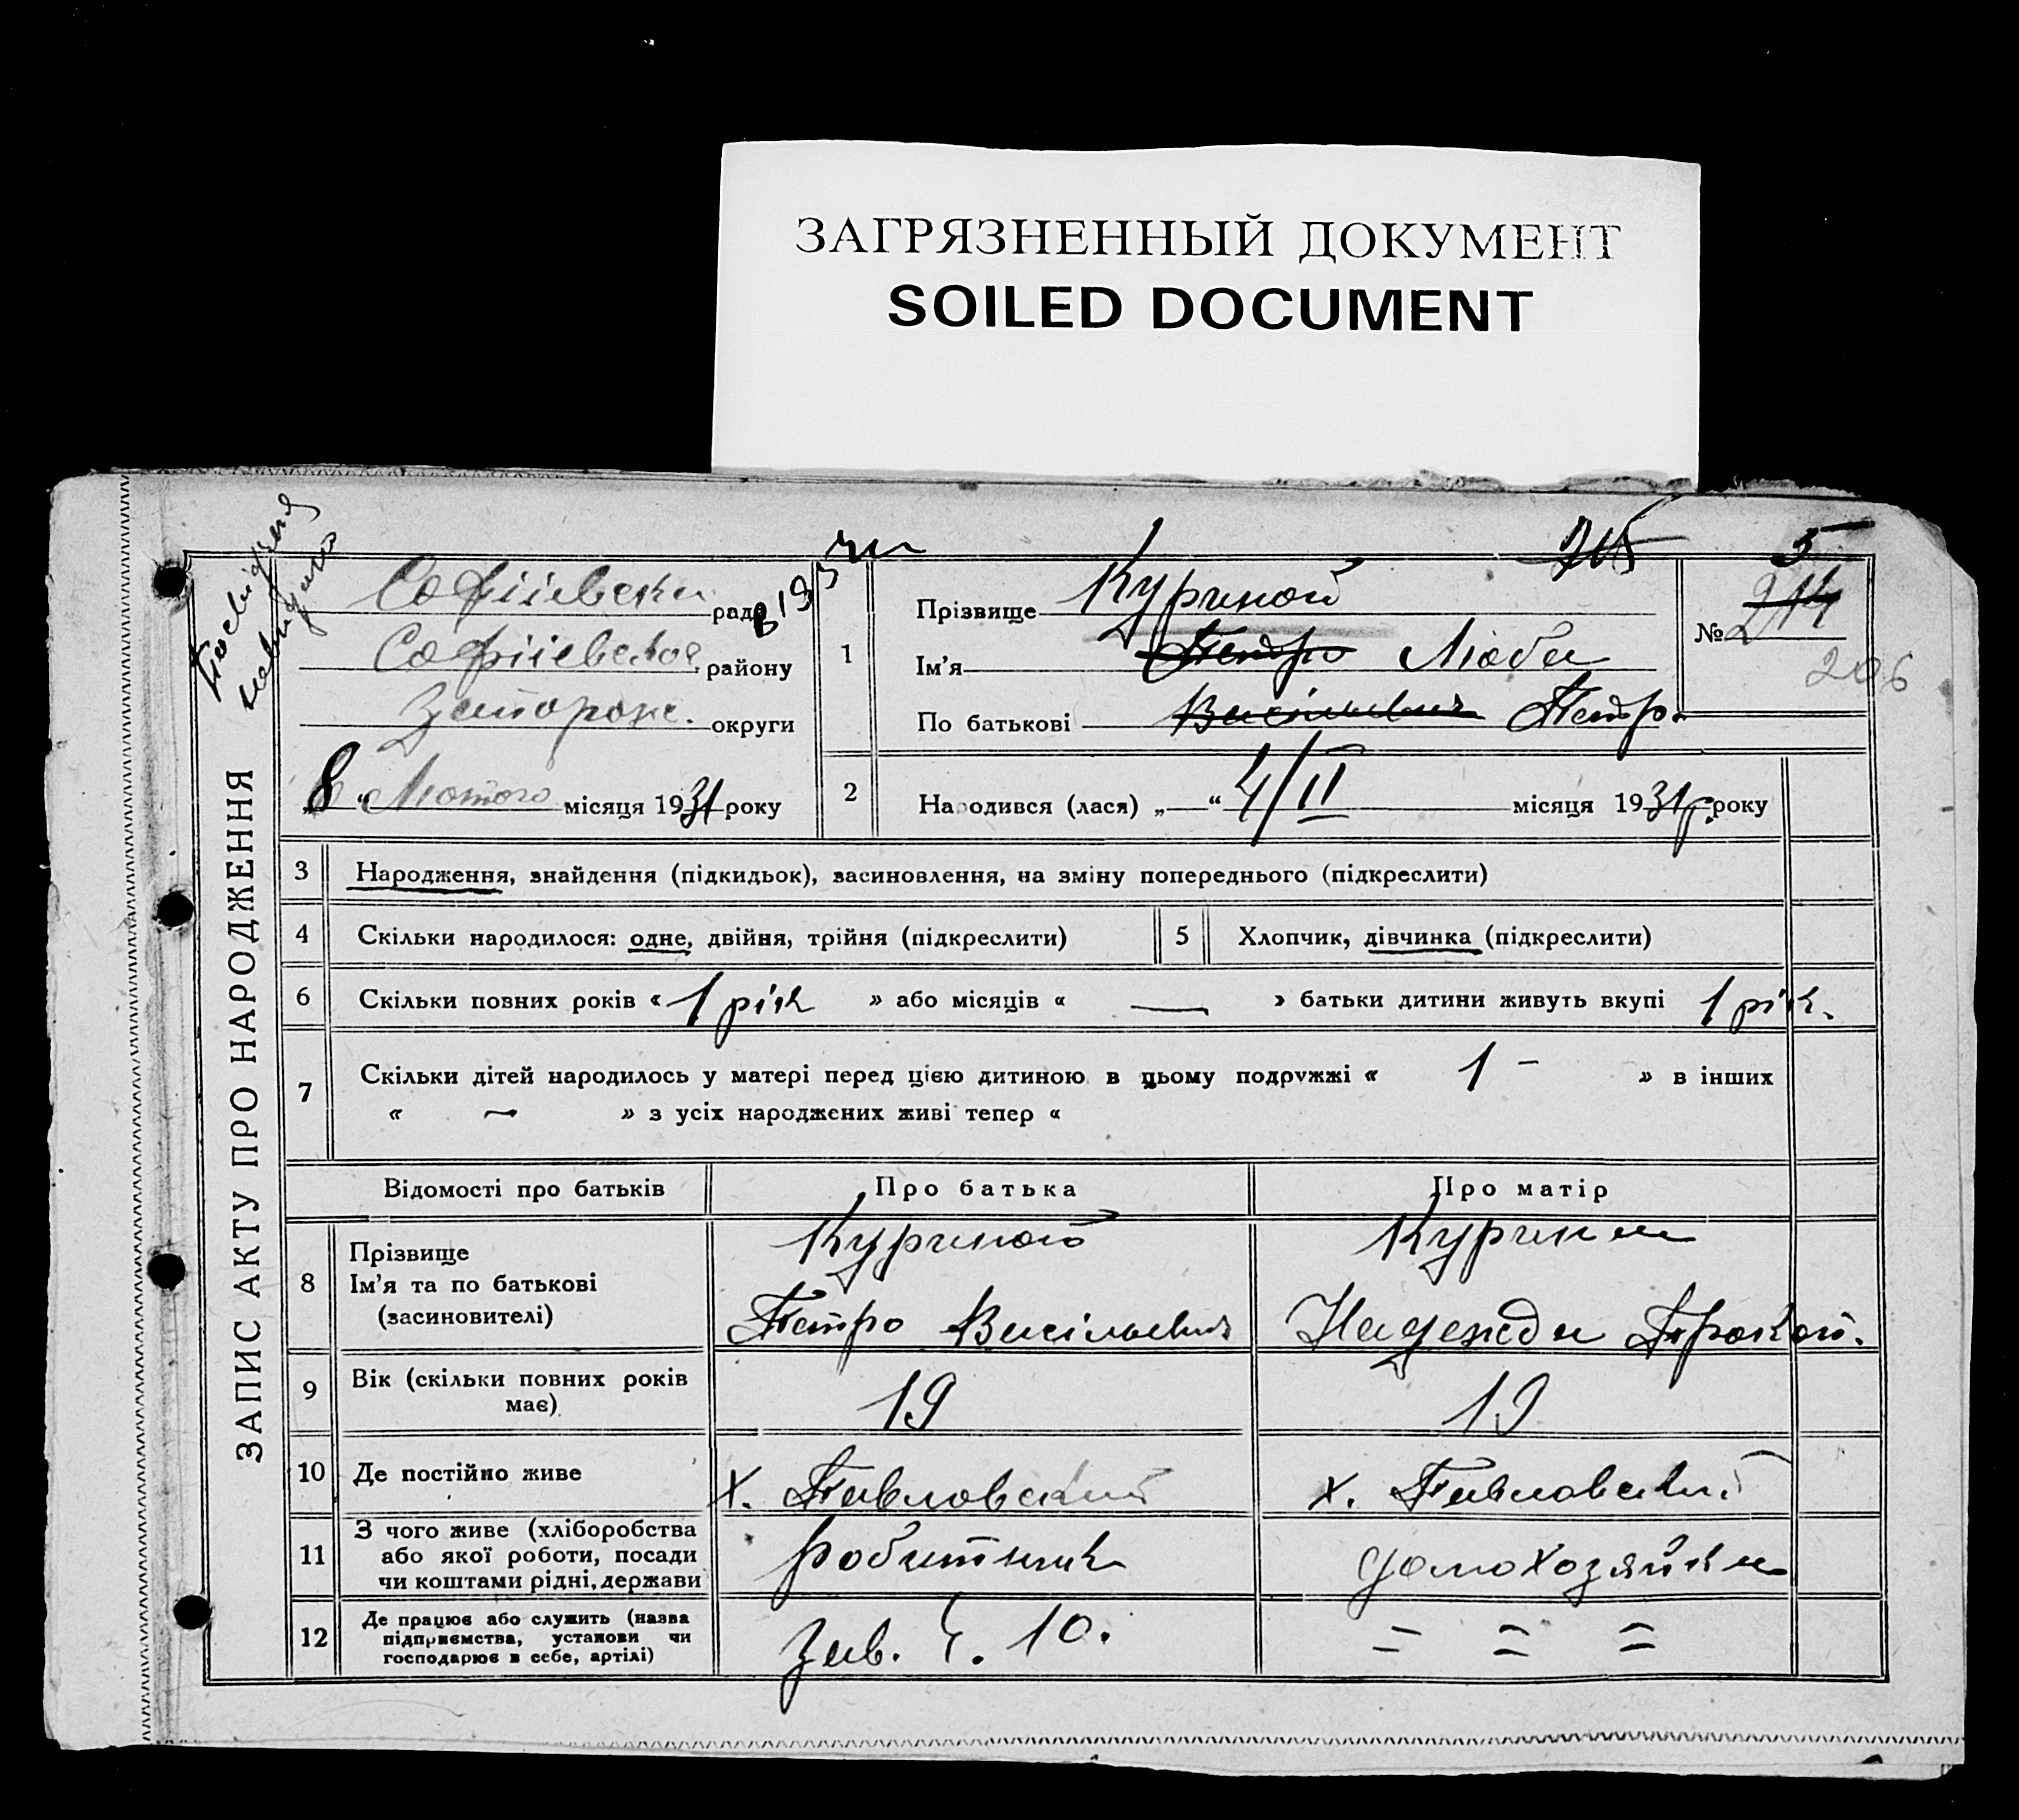 ЗАГРЯЗНЕННЫЙ ДОКУМЕНТ
SOILED DOCUMENT
ЗАПИС АКТУ ПРО НАРОДЖЕННЯ
Софіївська рада
Софіївського району
Запорож. округи
8 „Лютого місяця 1931 року
1
Прізвище Куриной
Ім'я Петро Люба
По батькові Васільевич Петр.
№ 214
206
2
Народився (лася) „ “ 4/II місяця 1931 р. року
3 Народження, знайдення (підкидьок), засиновлення, на зміну попереднього (підкреслити)
4 Скільки народилося: одне, двійня, трійня (підкреслити)
5 Хлопчик, дівчинка (підкреслити)
6 Скільки повних років « 1 рік » або місяців « — » батьки дитини живуть вкупі 1 рік.
7 Скільки дітей народилось у матері перед цією дитиною в цьому подружжі « 1 - » в інших
« — » з усіх народжених живі тепер «
Відомості про батьків Про батька Про матір
8 Прізвище
Ім'я та по батькові
(засиновителі)
Куриной
Петро Васільевич
Курина
Надежда Прокоп.
9 Вік (скільки повних років
має)
19
19
10 Де постійно живе х. Павловский х. Павловский
11 З чого живе (хліборобства
або якої роботи, посади
чи коштами рідні, держави
робитник
домохозяйка
12 Де працює або служить (назва
підприємства, установи чи
господарює в себе, артілі)
Зав. Ч. 10.
= = =